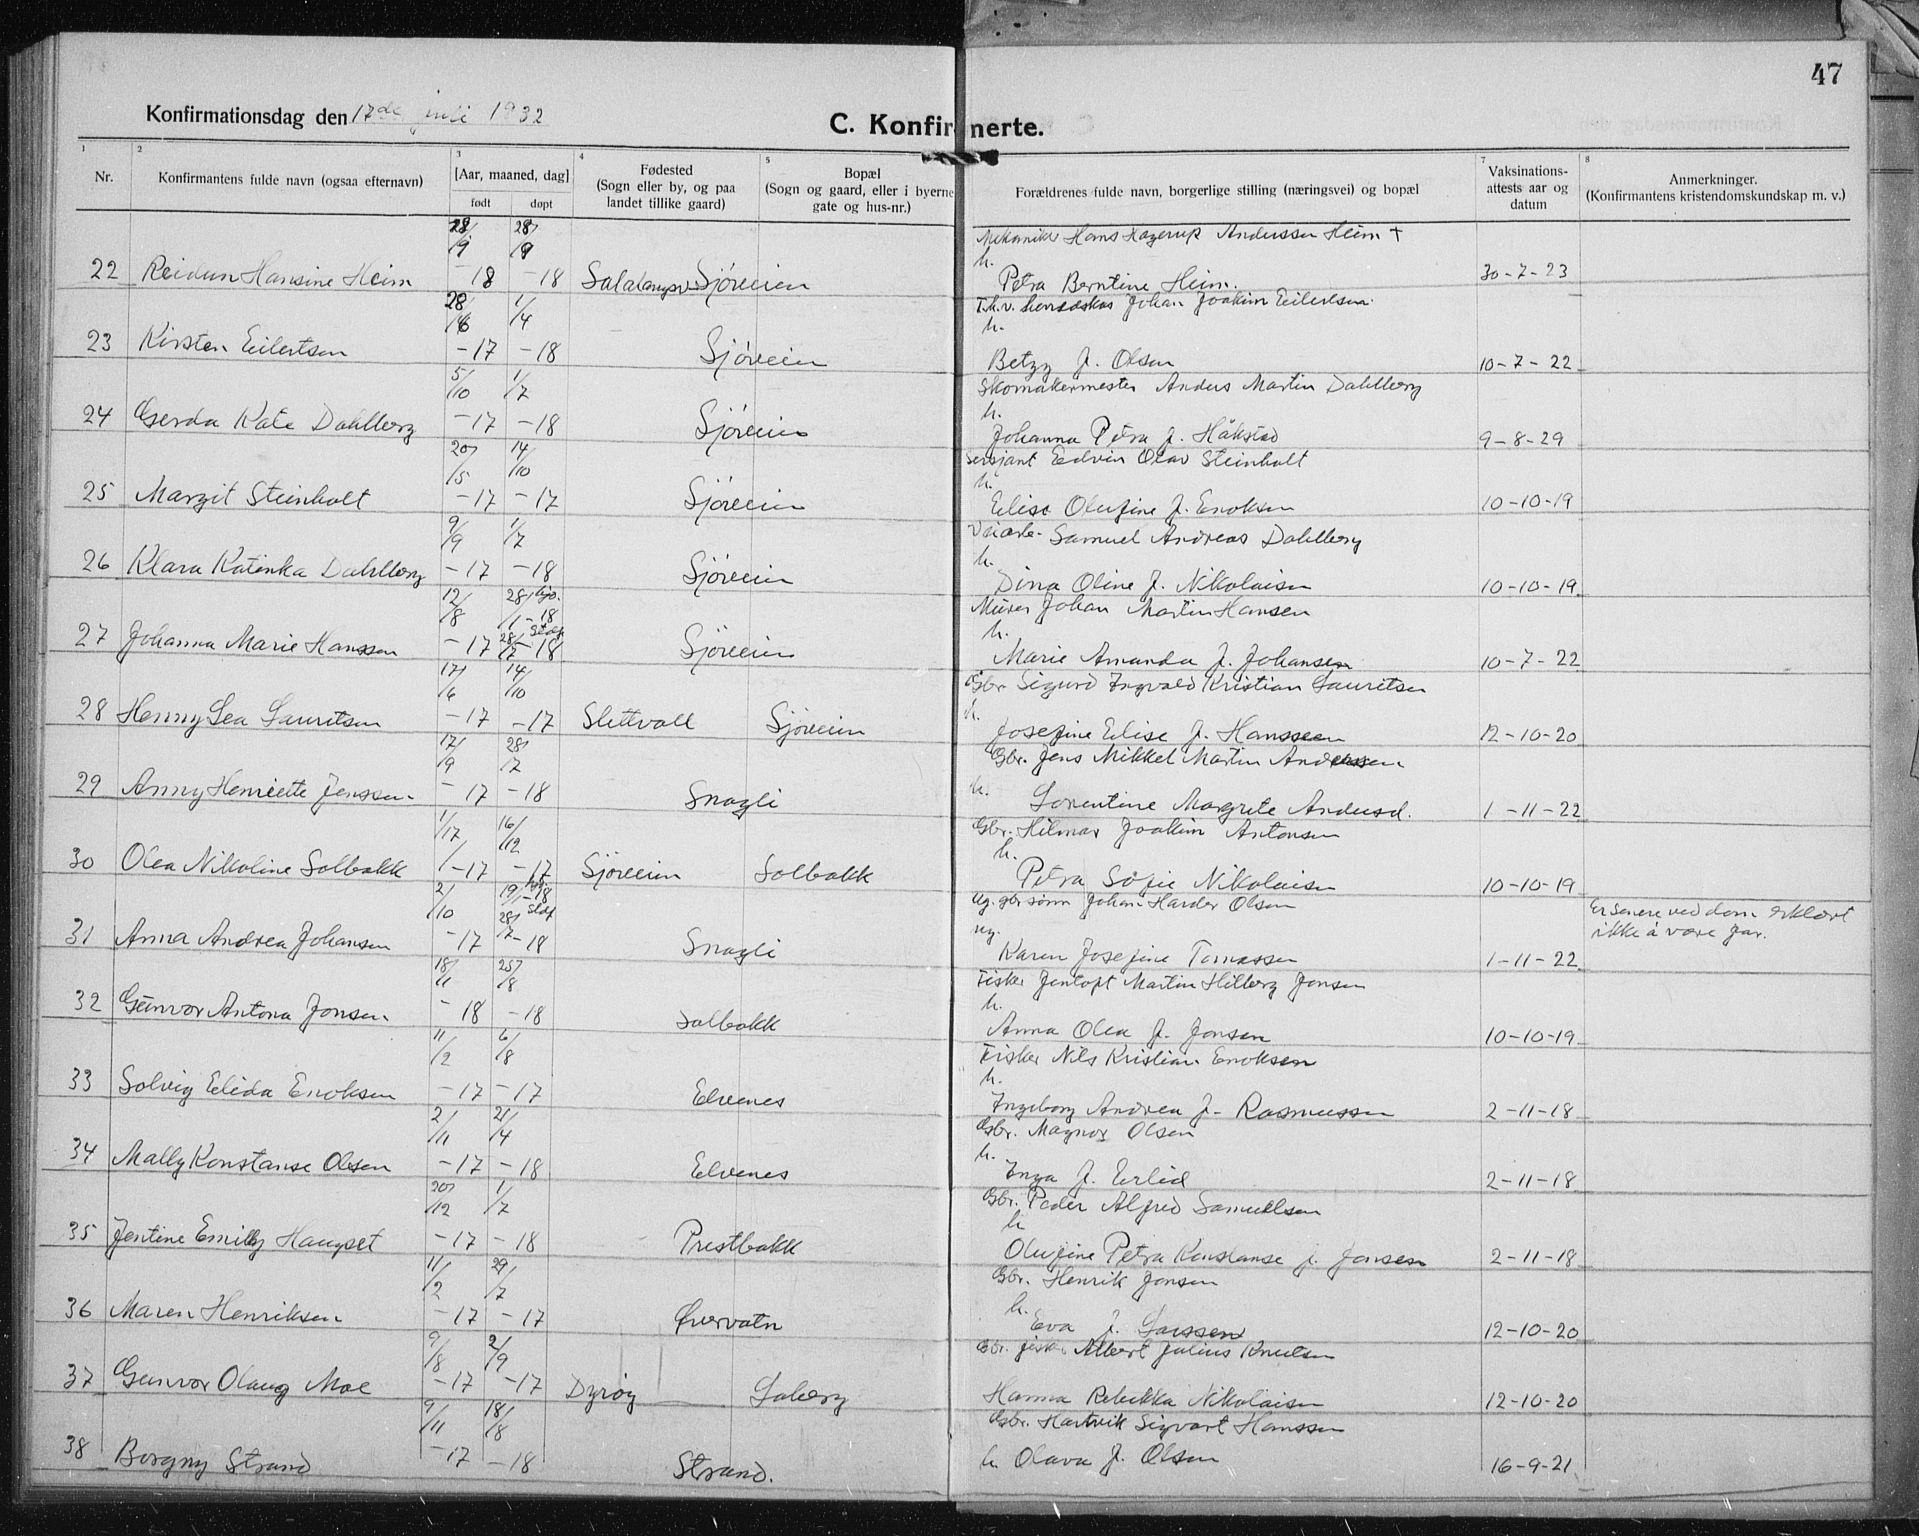 47
Konfirmationsdag den 17de juli 1932
C. Konfirmerte.
1 2 3 4 5 7 8
Nr. Konfirmantens fulde navn (ogsaa efternavn) [Aar, maaned, dag] født døpt Fødested (Sogn eller by, og paa landet tillike gaard) Bopæl (Sogn og gaard, eller i byerne gate og hus-nr.) Forældrenes fulde navn, borgerlige stilling (næringsvei) og bopæl Vaksinations-attests aar og datum Anmerkninger. (Konfirmantens kristendomskundskap m. v.)
28/9 28/9 Mekaniker Hans Hagerup Anderssen Heim +
22 Reidun Hansine Heim -18 -18 Salangsv. Sjøveien h. Petra Berntine Heim. 30-7-23
28/6 1/4 Johan Joakim Eilertsen
23 Kirsten Eilertsen -17 -18 Sjøveien h. Betzy f. Olsen 10-7-22
5/10 1/7 Skomakermester Anders Martin Dahlberg
24 Gerda Kate Dahlberg -17 -18 Sjøveien h. Johanna Petra f. Håkstad 9-8-29
20/5 14/10 Sersjant Edvin Olav Steinholt
25 Margit Steinholt -17 -17 Sjøveien h. Elise Olufine f. Enoksen 10-10-19
9/9 1/7 Veiarb. Samuel Andreas Dahlberg
26 Klara Katinka Dahlberg -17 -18 Sjøveien h. Dina Oline f. Nikolaisen 10-10-19
12/8 28/1 hjo. -18 Murer Johan Martin Hansen
27 Johanna Marie Hanssen -17 28/7 stdf -18 Sjøveien h. Marie Amanda f. Johansen 10-7-22
17/6 14/10 Gbr. Sigurd Ingvald Kristian Lauritsen
28 Henny Lea Lauritsen -17 -17 Slettvoll Sjøveien h. Josefine Elise f. Hanssen 12-10-20
17/9 28/7 Gbr. Jens Mikkel Martin Anderssen
29 Anny Henriette Jenssen -17 -18 Snagli h. Lorentine Margrete Andersd. 1-11-22
1/17 16/12 Gbr. Hilmar Joakim Antonsen
30 Olea Nikoline Solbakk -17 -17 Sjøveien Solbakk h. Petra Sofie Nikolaisen 10-10-19
2/10 19/1 hj -18 Ug. gbr sønn Johan Harder Olsen Er senere ved dom erklært
31 Anna Andrea Johansen -17 28/7 stdf -18 Snagli ug. Karen Josefine Tomassen 1-11-22 ikke å være far.
18/1 25/8 Fisker Jentoft Martin Hilberg Jonsen
32 Gunvor Antona Jonsen -18 -18 Solbakk h. Anna Olea f. Jonsen 10-10-19
11/2 6/8 Fisker Nils Kristian Enoksen
33 Solvig Elida Enoksen -17 -17 Elvenes h. Ingeborg Andrea f. Rasmussen 2-11-18
2/11 21/4 Gbr. Magnor Olsen
34 Mally Konstanse Olsen -17 -18 Elvenes h. Inga f. Erlid 2-11-18
20/12 1/7 Gbr. Peder Alfred Samuelsen
35 Jentine Emilly Haugset -17 -18 Prestbakk h Olufine Petra Konstanse f. Jonsen 2-11-18
11/2 29/7 Gbr. Henrik Jonsen
36 Maren Henriksen -17 -17 Øvervatn h. Eva f. Larssen 12-10-20
9/8 2/9 Gbr. fisker Albert Julius Knutsen
37 Gunvor Olaug Moe -17 -17 Dyrøy Løberg Hanna Rebekka Nikolaisen 12-10-20
9/11 18/8 Gbr. Hartvik Sigvart Hanssen
38 Borgny Strand -17 -18 Strand. h. Olava f. Olsen 16-9-21